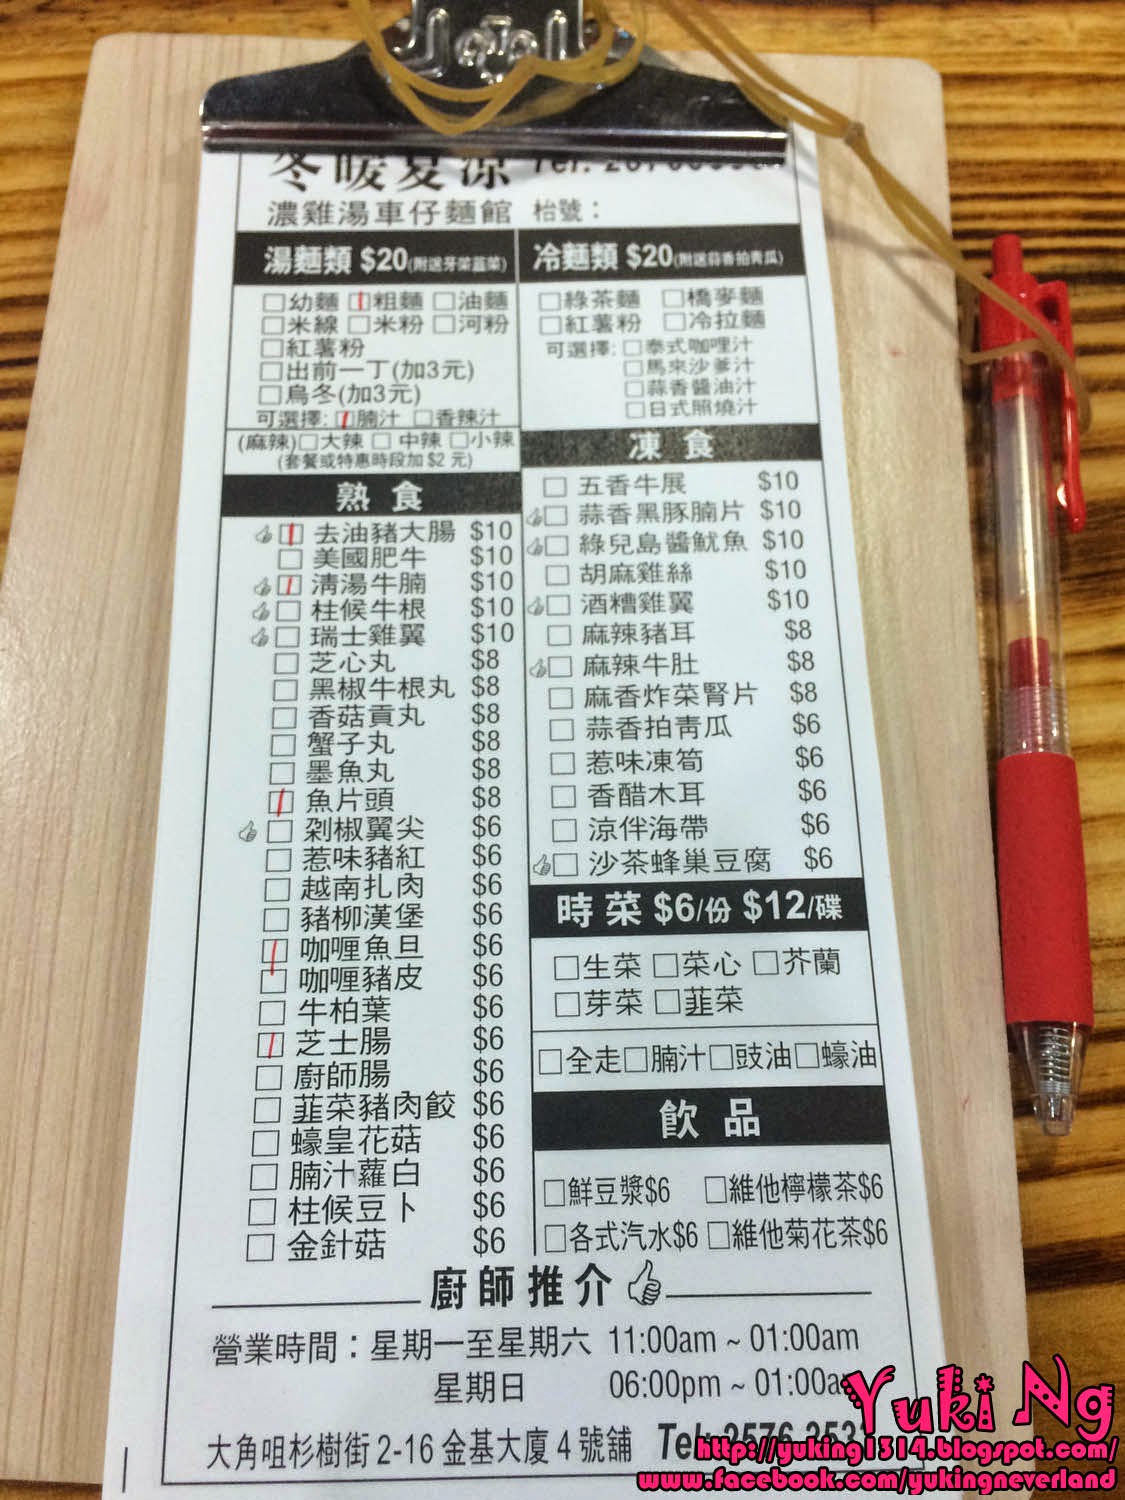 冬暖夏涼 Tel:
濃雞湯車仔麵館 枱號：
湯麵類 $20(附送芽菜韮菜)
□幼麵 □粗麵 □油麵
□米線 □米粉 □河粉
□紅薯粉
□出前一丁(加3元)
□烏冬(加3元)
可選擇: □腩汁 □香辣汁
(麻辣)□大辣 □ 中辣 □小辣
(套餐或特惠時段加 $2 元)
熟食
□ 去油豬大腸 $10
□ 美國肥牛 $10
□ 清湯牛腩 $10
□ 柱候牛根 $10
□ 瑞士雞翼 $10
□ 芝心丸 $8
□ 黑椒牛根丸 $8
□ 香菇貢丸 $8
□ 蟹子丸 $8
□ 墨魚丸 $8
□ 魚片頭 $8
□ 剁椒翼尖 $6
□ 惹味豬紅 $6
□ 越南扎肉 $6
□ 豬柳漢堡 $6
□ 咖喱魚旦 $6
□ 咖喱豬皮 $6
□ 牛柏葉 $6
□ 芝士腸 $6
□ 廚師腸 $6
□ 韮菜豬肉餃 $6
□ 蠔皇花菇 $6
□ 腩汁蘿白 $6
□ 柱候豆卜 $6
□ 金針菇 $6
冷麵類 $20(附送蒜香拍青瓜)
□綠茶麵 □橋麥麵
□紅薯粉 □冷拉麵
可選擇: □泰式咖哩汁
□馬來沙爹汁
□蒜香醬油汁
□日式照燒汁
凍食
□ 五香牛展 $10
□ 蒜香黑豚腩片 $10
□ 綠兒島醬魷魚 $10
□ 胡麻雞絲 $10
□ 酒糟雞翼 $10
□ 麻辣豬耳 $8
□ 麻辣牛肚 $8
□ 麻香炸菜腎片 $8
□ 蒜香拍青瓜 $6
□ 惹味凍筍 $6
□ 香醋木耳 $6
□ 涼伴海帶 $6
□ 沙茶蜂巢豆腐 $6
時菜 $6/份 $12/碟
□生菜 □菜心 □芥蘭
□芽菜 □韮菜
□全走□腩汁□豉油□蠔油
飲品
□鮮豆漿$6 □維他檸檬茶$6
□各式汽水$6 □維他菊花茶$6
廚師推介
營業時間：星期一至星期六 11:00am ~ 01:00am
星期日 06:00pm ~ 01:00a
大角咀杉樹街 2-16 金基大廈 4 號舖 Tel: 2576 353
Yuki Ng
http://yuking1314.blogspot.com/
www.facebook.com/yukingneverland